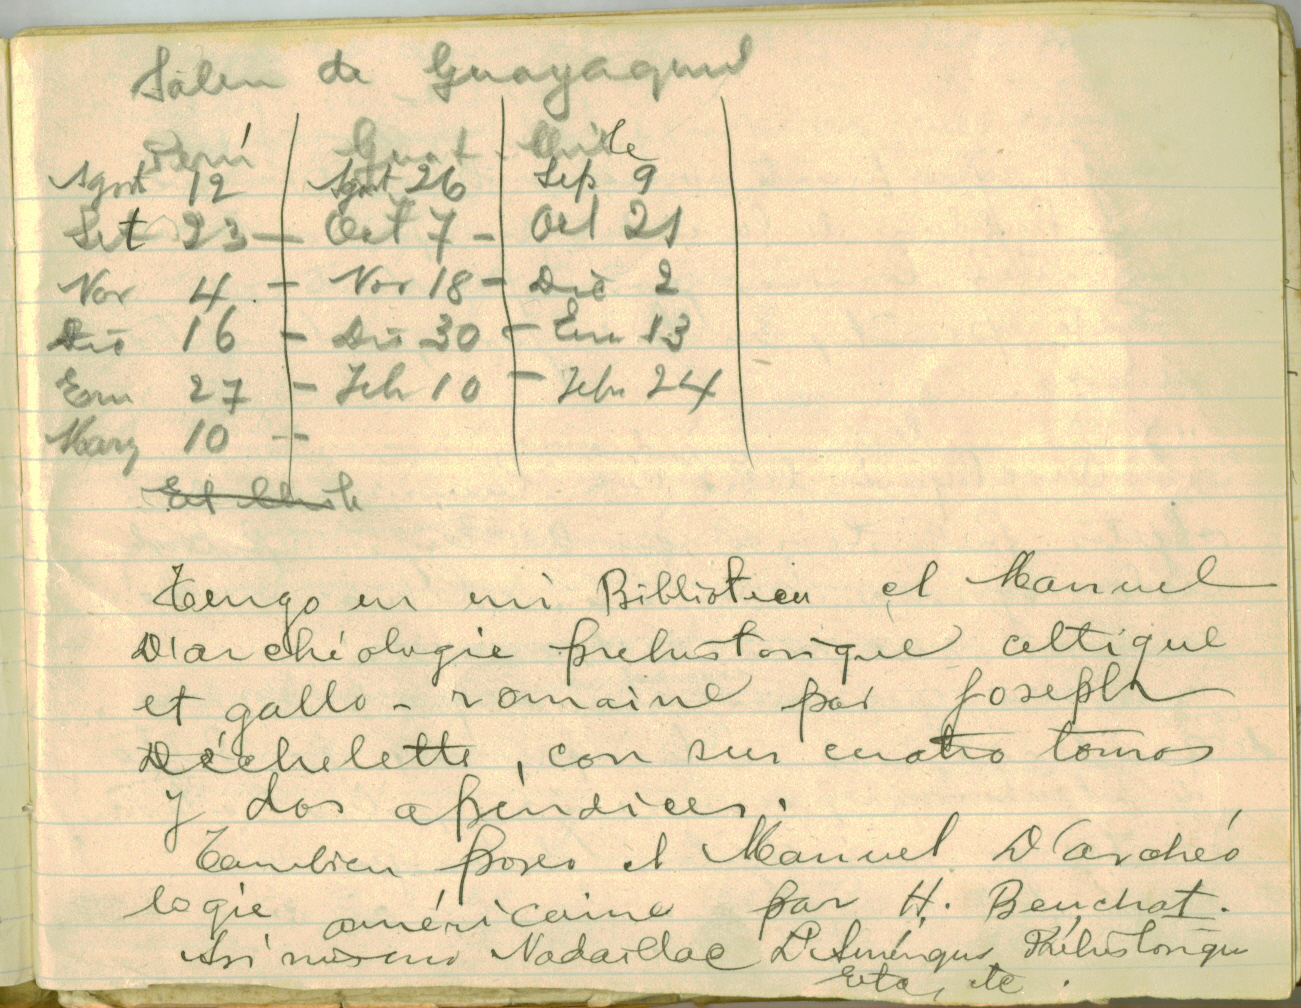 Salen de Guayaquil
Perú Guat. Chile
Agost 12 Agost 26 Sep 9
Set 23 — Oct 7 - Oct 21
Nov 4 - Nov 18 - Dic 2
Dic 16 - Dic 30 - Ene 13
Ene 27 - Feb 10 - Feb 24
Marz 10 -
Tengo en mi Biblioteca el Manuel
D'archéologie prehistorique celtique
et gallo-romaine par Joseph
Déchelette, con sus cuatro tomos
y dos apéndices.
Tambien poseo el Manuel D'archéo
logie américaine par H. Beuchat.
Asi mismo Nadaillac L'Amérique Préhistorique
Etc, etc.